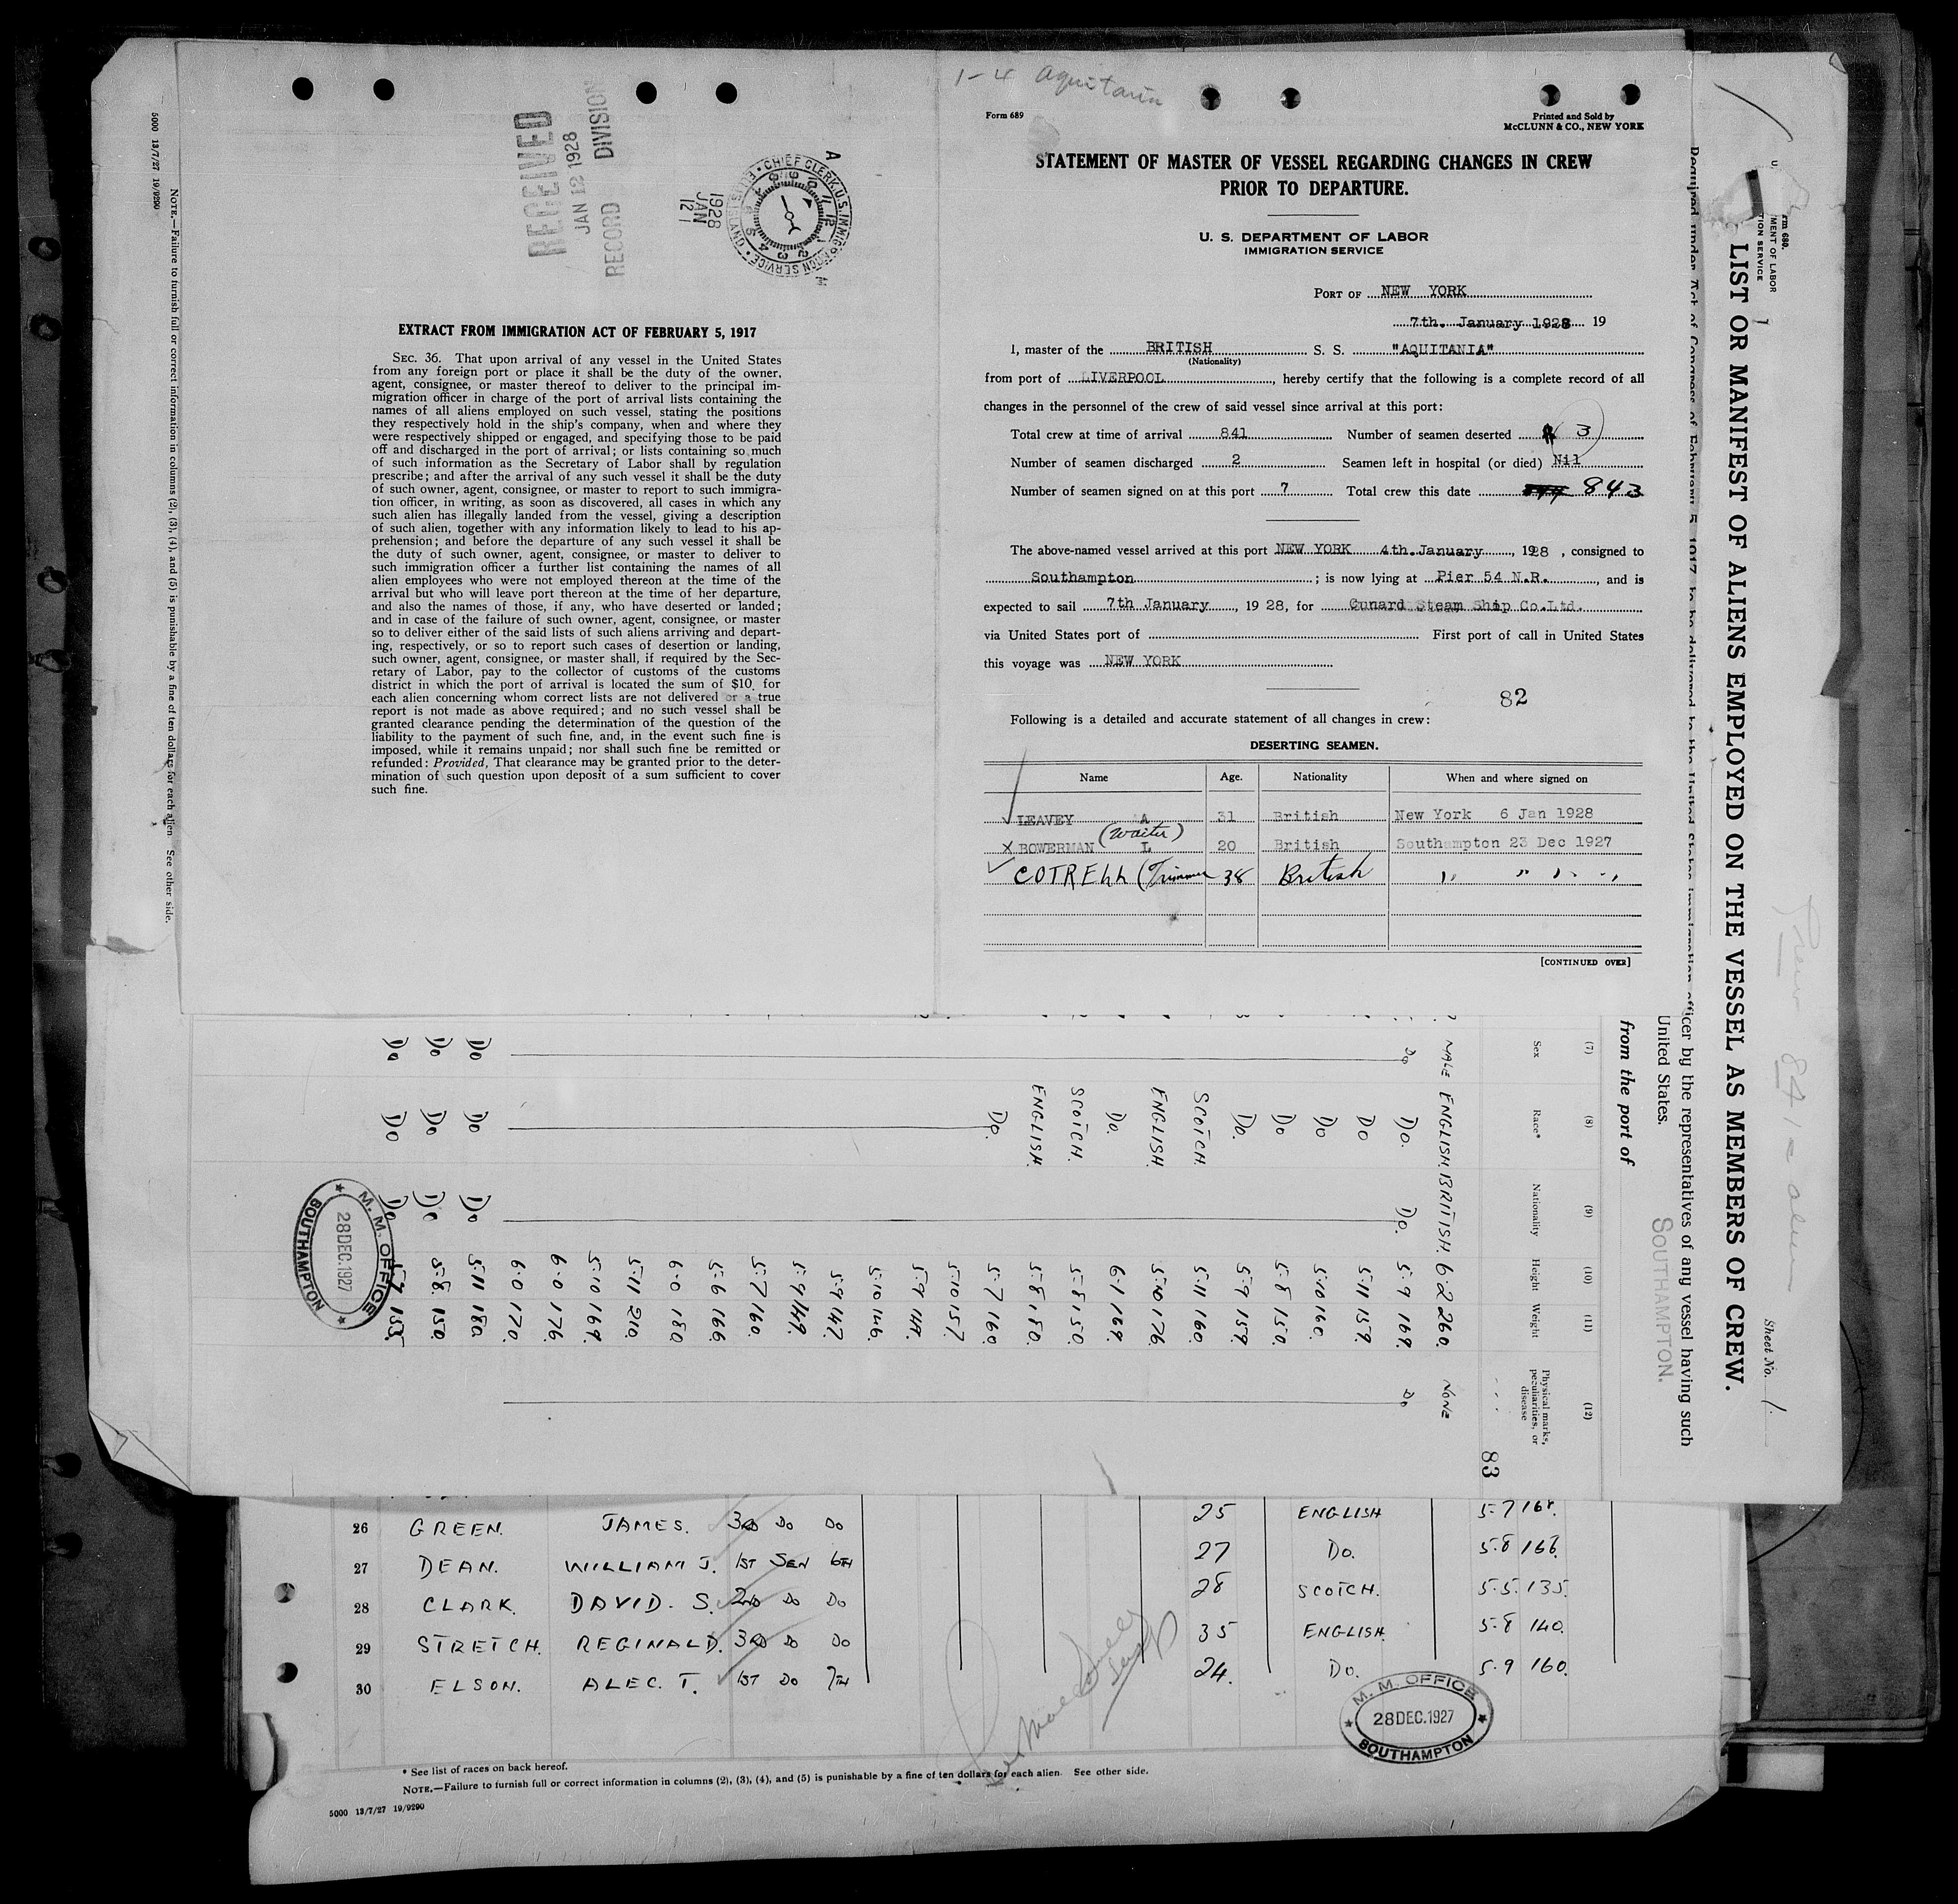 1-4 Aquitania
Form 689
Printed and Sold by
McCLUNN & CO., NEW YORK
STATEMENT OF MASTER OF VESSEL REGARDING CHANGES IN CREW
PRIOR TO DEPARTURE.
U. S. DEPARTMENT OF LABOR
IMMIGRATION SERVICE
PORT OF NEW YORK
7th. January 1928 19
I, master of the BRITISH S. S. "AQUITANIA"
(Nationality)
from port of LIVERPOOL, hereby certify that the following is a complete record of all
changes in the personnel of the crew of said vessel since arrival at this port:
Total crew at time of arrival 841 Number of seamen deserted 3
Number of seamen discharged 2 Seamen left in hospital (or died) Nil
Number of seamen signed on at this port 7 Total crew this date 843
The above-named vessel arrived at this port NEW YORK 4th.January, 1928, consigned to
Southampton; is now lying at Pier 54 N.R., and is
expected to sail 7th January, 19 28, for Cunard Steam Ship Co.Ltd.
via United States port of First port of call in United States
this voyage was NEW YORK
82
Following is a detailed and accurate statement of all changes in crew:
DESERTING SEAMEN.
Name Age. Nationality When and where signed on
LEAVEY A 31 British New York 6 Jan 1928
(Waiter)
X BOWERMAN L 20 British Southampton 23 Dec 1927
COTRELL (Trimmer 38 British " " " "
[CONTINUED OVER]
RECEIVED
JAN 12 1928
RECORD DIVISION
CHIEF CLERK, U.S. IMMIGRATION SERVICE ELLIS ISLAND
1928
JAN
12
A
EXTRACT FROM IMMIGRATION ACT OF FEBRUARY 5, 1917
SEC. 36. That upon arrival of any vessel in the United States
from any foreign port or place it shall be the duty of the owner,
agent, consignee, or master thereof to deliver to the principal im-
migration officer in charge of the port of arrival lists containing the
names of all aliens employed on such vessel, stating the positions
they respectively hold in the ship's company, when and where they
were respectively shipped or engaged, and specifying those to be paid
off and discharged in the port of arrival; or lists containing so much
of such information as the Secretary of Labor shall by regulation
prescribe; and after the arrival of any such vessel it shall be the duty
of such owner, agent, consignee, or master to report to such immigra-
tion officer, in writing, as soon as discovered, all cases in which any
such alien has illegally landed from the vessel, giving a description
of such alien, together with any information likely to lead to his ap-
prehension; and before the departure of any such vessel it shall be
the duty of such owner, agent, consignee, or master to deliver to
such immigration officer a further list containing the names of all
alien employees who were not employed thereon at the time of the
arrival but who will leave port thereon at the time of her departure,
and also the names of those, if any, who have deserted or landed;
and in case of the failure of such owner, agent, consignee, or master
so to deliver either of the said lists of such aliens arriving and depart-
ing, respectively, or so to report such cases of desertion or landing,
such owner, agent, consignee, or master shall, if required by the Sec-
retary of Labor, pay to the collector of customs of the customs
district in which the port of arrival is located the sum of $10 for
each alien concerning whom correct lists are not delivered or a true
report is not made as above required; and no such vessel shall be
granted clearance pending the determination of the question of the
liability to the payment of such fine, and, in the event such fine is
imposed, while it remains unpaid; nor shall such fine be remitted or
refunded: Provided, That clearance may be granted prior to the deter-
mination of such question upon deposit of a sum sufficient to cover
such fine.
Sheet No. 1.
LIST OR MANIFEST OF ALIENS EMPLOYED ON THE VESSEL AS MEMBERS OF CREW.
Required under Act of Congress of February 5, 1917, to be delivered to the United States immigration officer by the representatives of any vessel having such
United States.
SOUTHAMPTON.
from the port of
(7) (8) (9) (10) (11) (12)
Sex Race* Nationality Height Weight Physical marks, peculiarities, or disease
83
MALE ENGLISH. BRITISH. 6.2 260. NONE
Do Do. Do. 5.9 169. Do
Do 5.11 159.
Do 5.10 160.
Do 5.8 150.
Do. 5.9 159.
SCOTCH. 5.11 160.
ENGLISH. 5.10 176.
Do. 6.1 169.
SCOTCH. 5.8 150.
ENGLISH. 5.8 150.
Do. 5.7 160.
5.10 157.
5.9 149.
5.10 146.
5.9 147.
5.9 149.
5.7 160.
5.6 166.
6.0 180.
5.11 210.
5.10 169.
6.0 176.
6.0 170.
Do Do Do 5.11 180.
Do Do Do 5.8. 150.
Do Do Do
M. M. OFFICE
28 DEC. 1927
SOUTHAMPTON
NOTE.—Failure to furnish full or correct information in columns (2), (3), (4), and (5) is punishable by a fine of ten dollars for each alien See other side.
5000 13/7/27 19/9290
26 GREEN. JAMES. 3RD Do Do 25 ENGLISH 5.7 168.
27 DEAN. WILLIAM J. 1ST SEN 6TH 27 Do. 5.8 166.
28 CLARK. DAVID. S. 2ND Do Do 28 SCOTCH. 5.5. 135.
29 STRETCH. REGINALD. 3RD Do Do 35 ENGLISH. 5.8 140.
30 ELSON. ALEC. T. 1ST Do 7TH 24. Do. 5.9 160.
M. M. OFFICE
28 DEC. 1927
SOUTHAMPTON
* See list of races on back hereof.
NOTE.—Failure to furnish full or correct information in columns (2), (3), (4), and (5) is punishable by a fine of ten dollars for each alien. See other side.
5000 13/7/27 19/9290